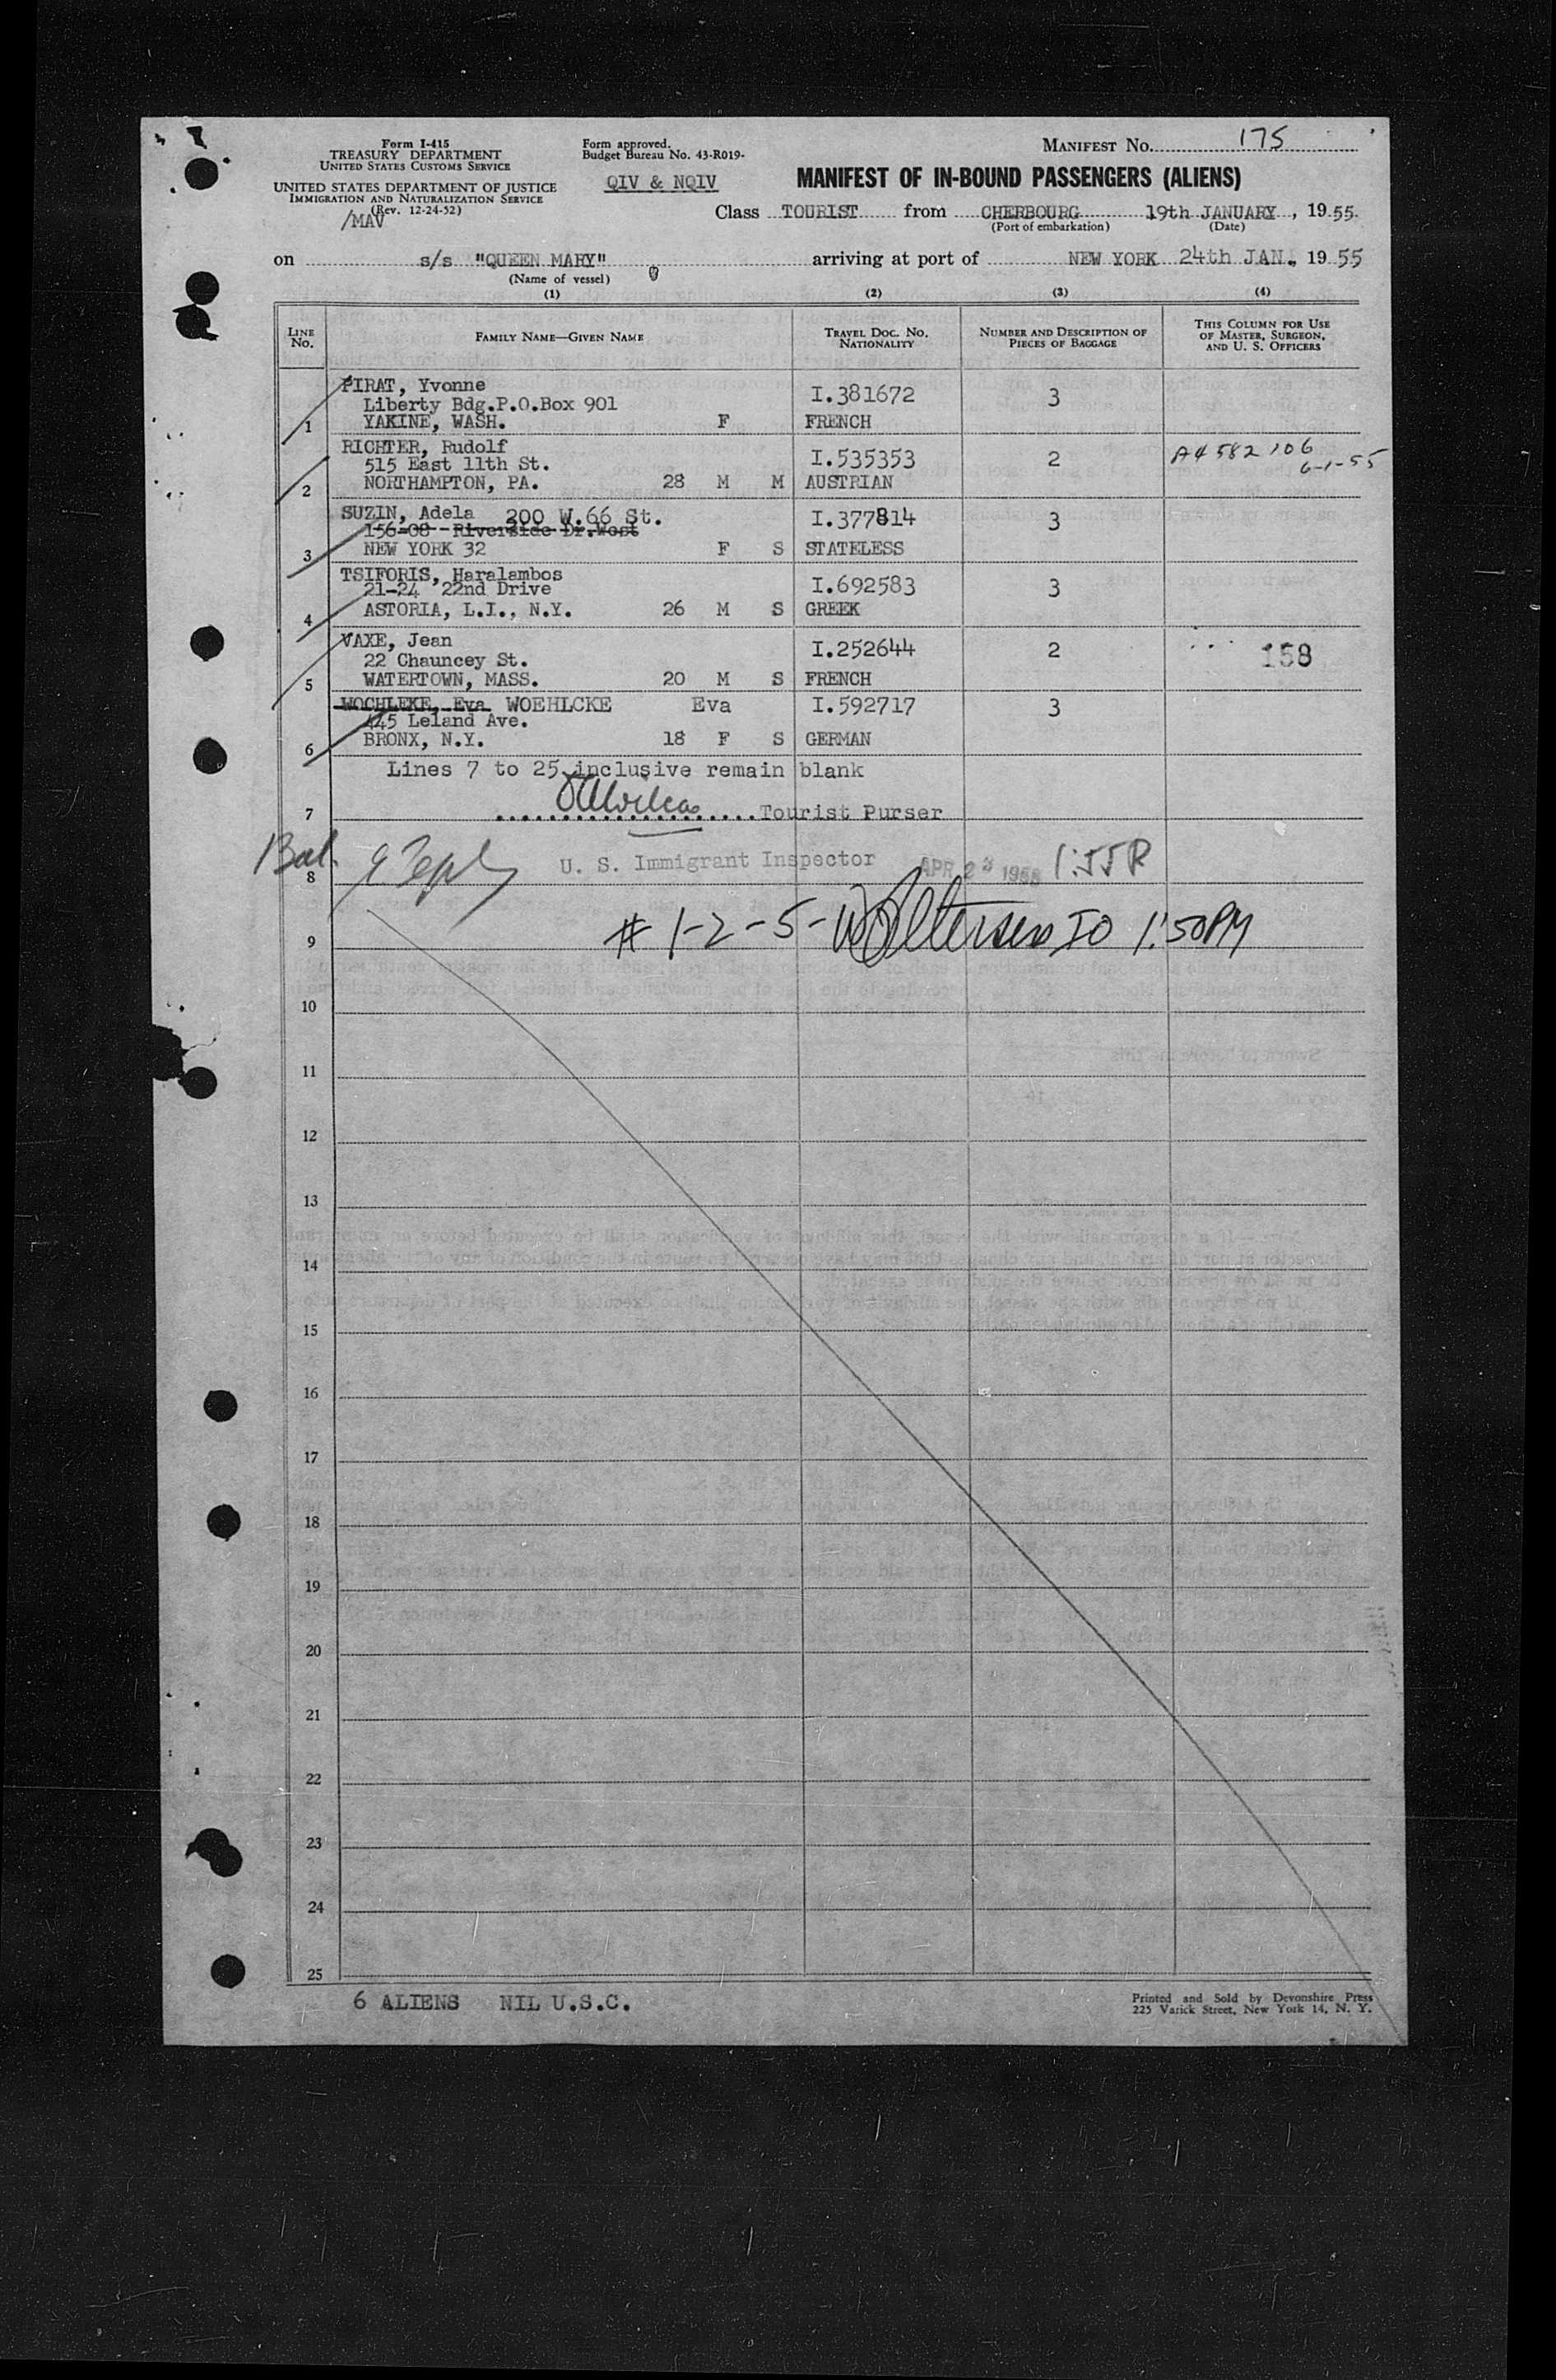 Form I-415
TREASURY DEPARTMENT
UNITED STATES CUSTOMS SERVICE
UNITED STATES DEPARTMENT OF JUSTICE
IMMIGRATION AND NATURALIZATION SERVICE
(Rev. 12-24-52)
/MAV
Form approved.
Budget Bureau No. 43-R019-
QIV & NQIV
MANIFEST NO. 175
MANIFEST OF IN-BOUND PASSENGERS (ALIENS)
Class TOURIST from CHERBOURG 19th JANUARY, 19 55.
(Port of embarkation) (Date)
on s/s "QUEEN MARY" arriving at port of NEW YORK 24th JAN., 19 55
(Name of vessel)
(1) (2) (3) (4)
LINE NO. FAMILY NAME—GIVEN NAME TRAVEL DOC. NO. NATIONALITY NUMBER AND DESCRIPTION OF PIECES OF BAGGAGE THIS COLUMN FOR USE OF MASTER, SURGEON, AND U. S. OFFICERS
PIRAT, Yvonne I.381672 3
Liberty Bdg.P.O.Box 901
1 YAKINE, WASH. F FRENCH
RICHTER, Rudolf I.535353 2 A4 582 106
515 East 11th St. 6-1-55
2 NORTHAMPTON, PA. 28 M M AUSTRIAN
SUZIN, Adela 200 W.66 St. I.377814 3
156-08 Riverside Dr.West
3 NEW YORK 32 F S STATELESS
TSIFORIS, Haralambos I.692583 3
21-24 22nd Drive
4 ASTORIA, L.I., N.Y. 26 M S GREEK
VAXE, Jean I.252644 2 158
22 Chauncey St.
5 WATERTOWN, MASS. 20 M S FRENCH
WOCHLEKE, Eva WOEHLCKE Eva I.592717 3
445 Leland Ave.
6 BRONX, N.Y. 18 F S GERMAN
Lines 7 to 25 inclusive remain blank
7 Tourist Purser
Bal.
8 U. S. Immigrant Inspector APR 23 1955
# 1-2-5- IO 1:50PM
9
10
11
12
13
14
15
16
17
18
19
20
21
22
23
24
25
6 ALIENS NIL U.S.C.
Printed and Sold by Devonshire Press
225 Varick Street, New York 14, N. Y.